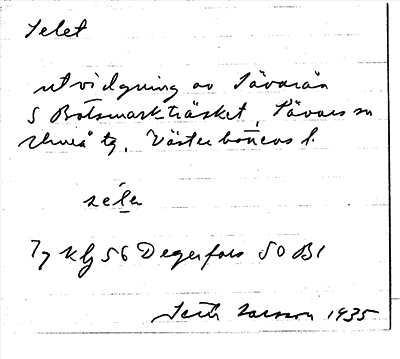 Selet
utvidgning av Sävarån
S Botsmarkträsket, Sävars sn
Umeå tg, Västerbottens l.
sé̱le̱n
Ty Klj 56 Degerfors 50 B1
Larsson 1935